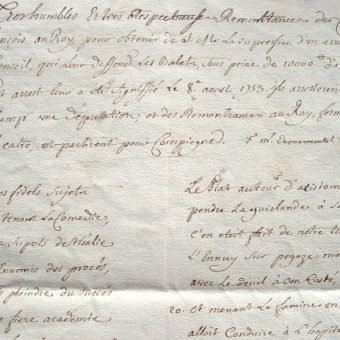 Treshumbles Et tres Respectueuse Remontrance des
ançois au Roy, pour obtenir de S. M. La Supression d'un arrest
onseil, qui leur deffend Les Balets, sous peine de 10000.
arrest leur a été Signiffié Le 8e aoust 1753.
une Députation, et des Remontrances au Roy, ferm
éatre, et partirent pour Compiegne.
fidels Sujets
tenant La Comedie,
Supots de thalie
Ennemis des procés,
plaindre du Succés
fiere academie
Le Plat auteur d'aristom
pendre La guirlande à Sa
C'en étoit fait de notre
L'Ennuy Sur pegaze mo
avec Le deuil à Son Costé,
20. et menant La famine en
alloit Conduire à L'hopital